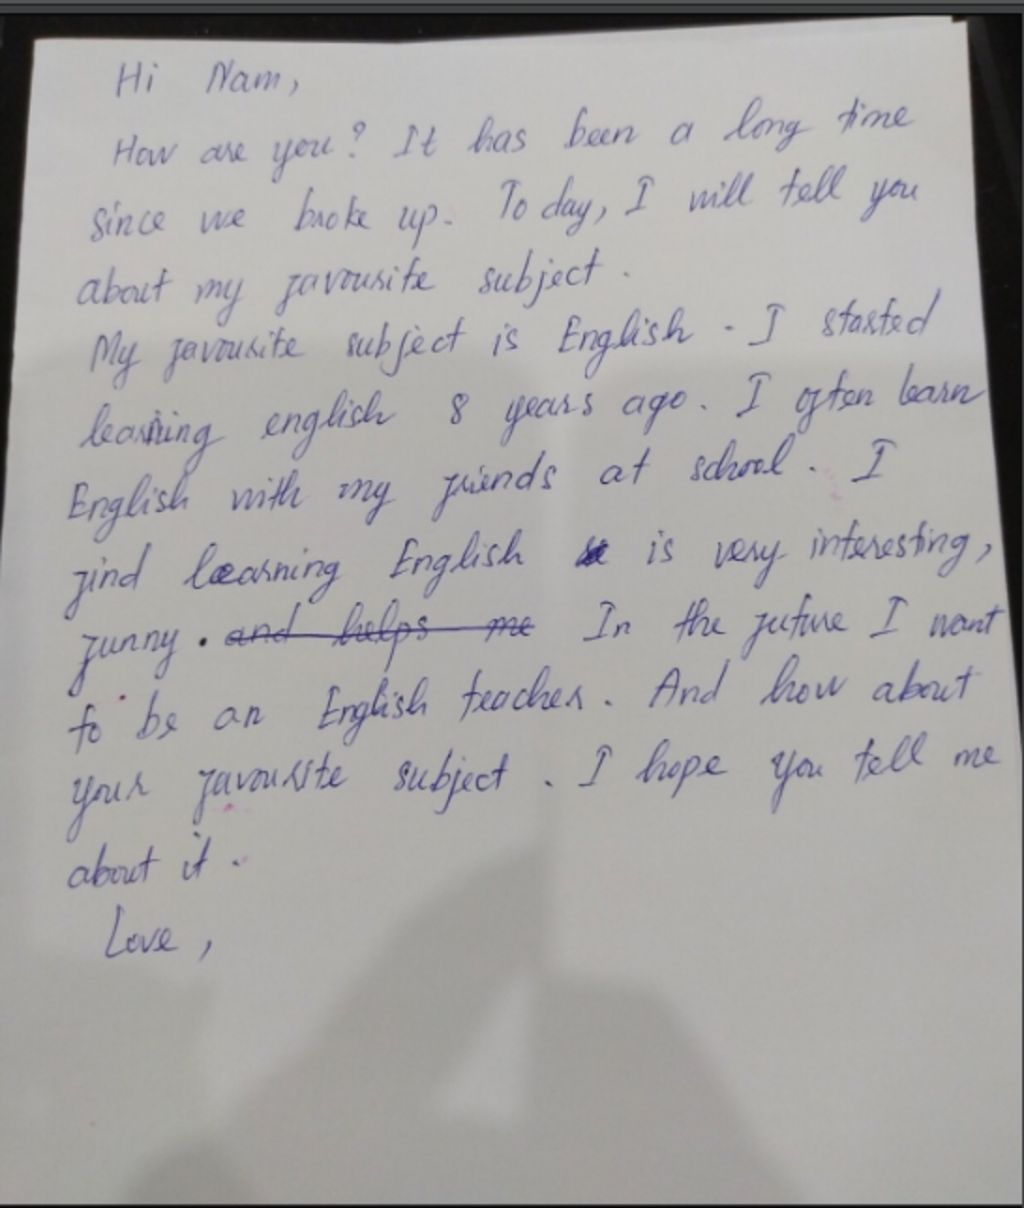 Hi Nam,
How are you? It has been a long time
since we broke up. To day, I will tell you
about my favourite subject.
My favourite subject is English. I started
learning english 8 years ago. I often learn
English with my friends at school. I
find learning English is very interesting,
funny. and helps me In the future I want
to be an English teacher. And how about
your favourite subject. I hope you tell me
about it.
Love,